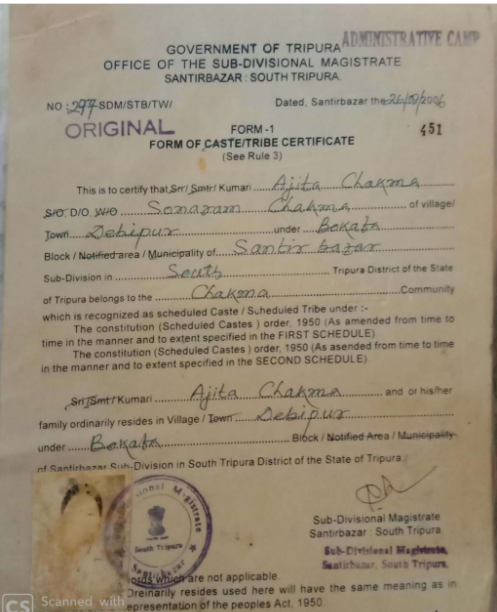 ADMINISTRATIVE CAMP
GOVERNMENT OF TRIPURA
OFFICE OF THE SUB-DIVISIONAL MAGISTRATE
SANTIRBAZAR : SOUTH TRIPURA.
NO : 297-SDM/STB/TW/ Dated, Santirbazar the 26/09/2006
ORIGINAL FORM -1 451
FORM OF CASTE/TRIBE CERTIFICATE
(See Rule 3)
This is to certify that Sri/ Smt/ Kumari Ajita Chakma
S/O. D/O. W/O Sonaram Chakma of village/
Town Debipur under Bokafa
Block / Notified area / Municipality of Santir bazar
Sub-Division in South Tripura District of the State
of Tripura belongs to the Chakma Community
which is recognized as scheduled Caste / Scheduled Tribe under :-
The constitution (Scheduled Castes ) order, 1950 (As amended from time to
time in the manner and to extent specified in the FIRST SCHEDULE)
The constitution (Scheduled Castes ) order, 1950 (As asended from time to time
in the manner and to extent specified in the SECOND SCHEDULE)
Sri/Smt/ Kumari Ajita Chakma and or his/her
family ordinarily resides in Village / Town Debipur
under Bokafa Block / Notified Area / Municipality
of Santirbazar Sub-Division in South Tripura District of the State of Tripura.
Sub-Divisional Magistrate
Santirbazar : South Tripura
Sub-Divisional Magistrate,
Santirbazar, South Tripura.
South Tripura
Santirbazar
which are not applicable
Dreinarily resides used here will have the same meaning as in
epresentation of the peoples Act, 1950
CS Scanned with